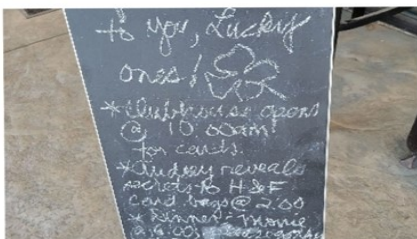 to you, Lucky
ones!
* Clubhouse opens
@ 10:00am
for cards.
* Audrey reveals
secrets to H & F
card bags @ 2:00
* Dinner - Movie
@ 6:00